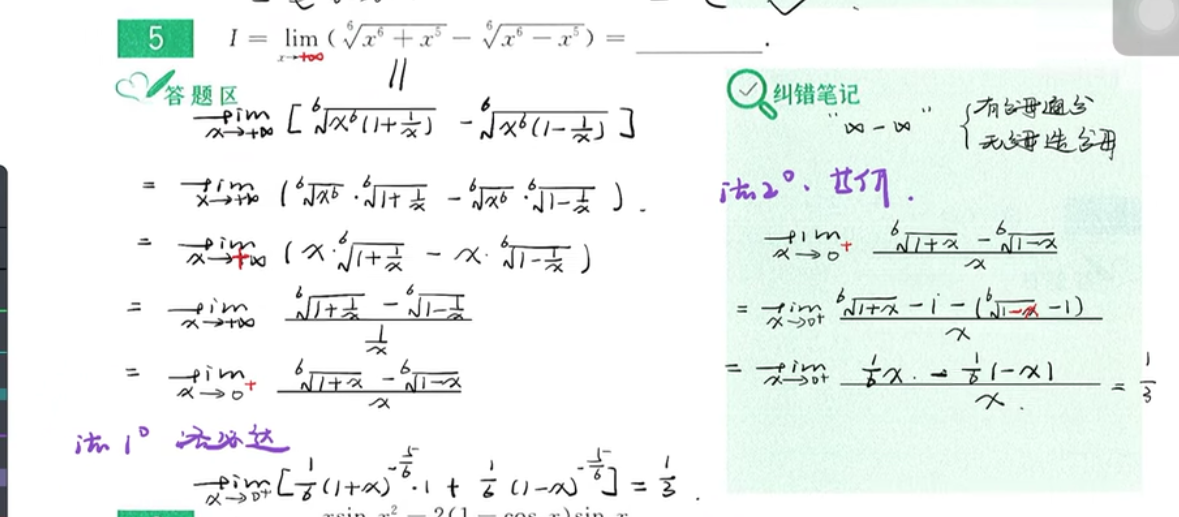 5 I = lim x→+∞ ( ⁶√(x⁶ + x⁵) − ⁶√(x⁶ − x⁵) ) = ________.
||
答题区
lim x→+∞ [ ⁶√(x⁶(1+1/x)) − ⁶√(x⁶(1−1/x)) ]
= lim x→+∞ ( ⁶√x⁶ · ⁶√(1+1/x) − ⁶√x⁶ · ⁶√(1−1/x) ).
= lim x→+∞ ( x·⁶√(1+1/x) − x·⁶√(1−1/x) )
= lim x→+∞ (⁶√(1+1/x) − ⁶√(1−1/x)) / (1/x)
= lim x→0⁺ (⁶√(1+x) − ⁶√(1−x)) / x
法1° 洛必达
lim x→0⁺ [ 1/6 (1+x)^(−5/6) ·1 + 1/6 (1−x)^(−5/6) ] = 1/3 .
纠错笔记
"∞ − ∞" { 有分母通分
无分母造分母
法2°. 等价.
lim x→0⁺ (⁶√(1+x) − ⁶√(1−x)) / x
= lim x→0⁺ (⁶√(1+x) − 1 − (⁶√(1−x) − 1)) / x
= lim x→0⁺ (1/6 x. − 1/6 (−x)) / x. = 1/3